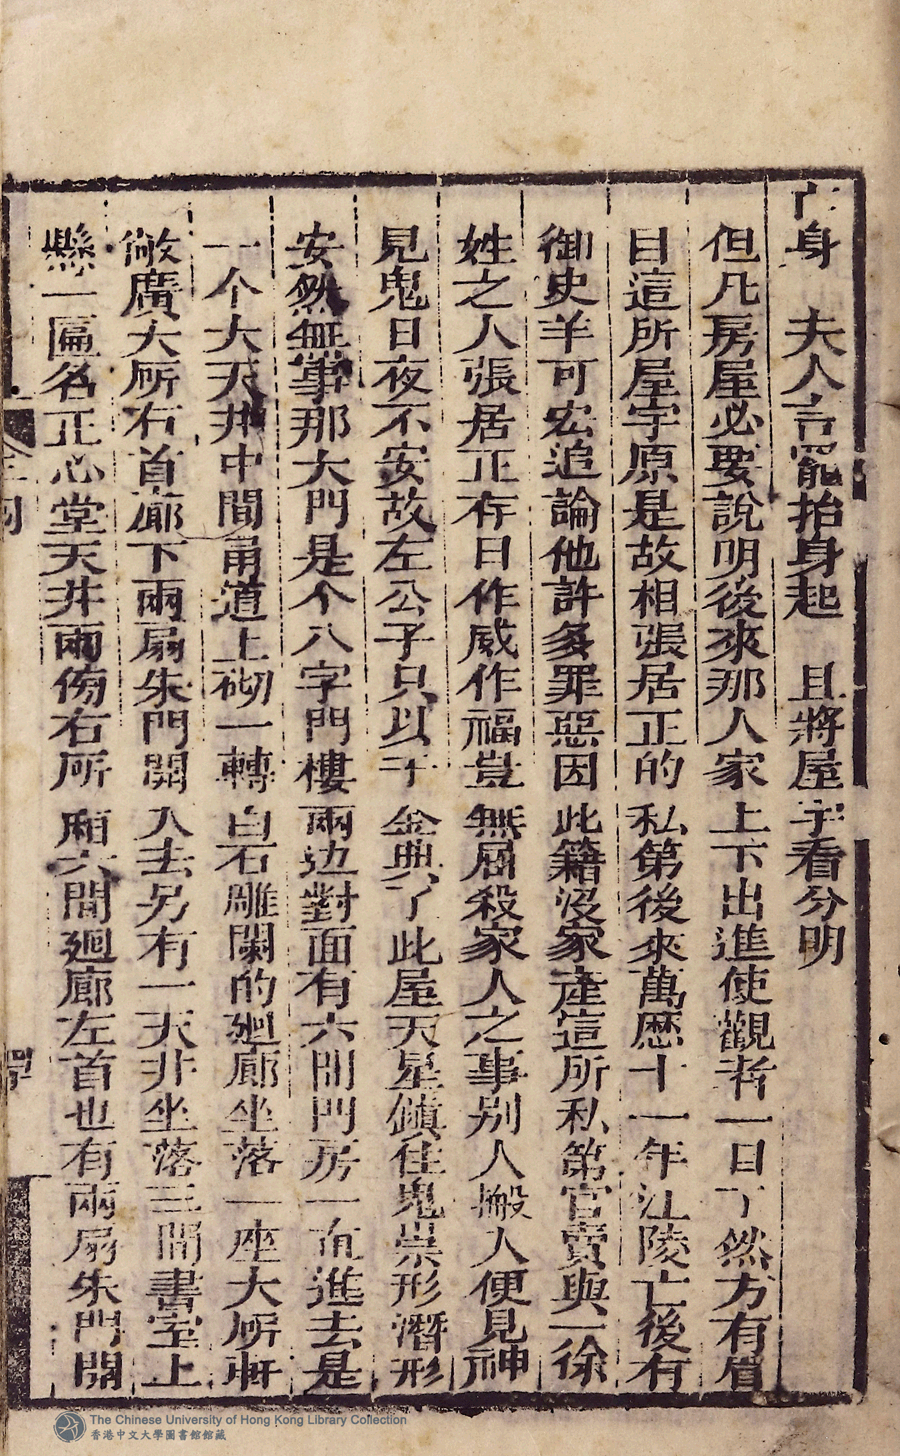 身　夫人言罷抬身起　且將屋宇看分明
但凡房屋必要說明後來那人家上下出進使觀者一目了然方有眉
目這所屋宇原是故相張居正的私第後來萬歷十一年江陵亡後有
御史羊可宏追論他許多罪惡因此籍沒家產這所私第官賣與一徐
姓之人張居正存日作威作福豈無屈殺家人之事別人搬入便見神
見鬼日夜不安故左公子只以千金典了此屋天星鎮住鬼祟形潛形
安然無事那大門是个八字門樓兩边對面有六間門房一直進去是
一个大天井中間甬道上砌一轉白石雕闌的廻廊坐落一座大所軒
敞廣大所右首廊下兩扇朱門開入去另有一天井坐落三間書室上
懸一匾名正心堂天井兩傍右所廂六間廻廊左首也有兩扇朱門開
香港中文大學圖書館館藏
The Chinese University of Hong Kong Library Collection